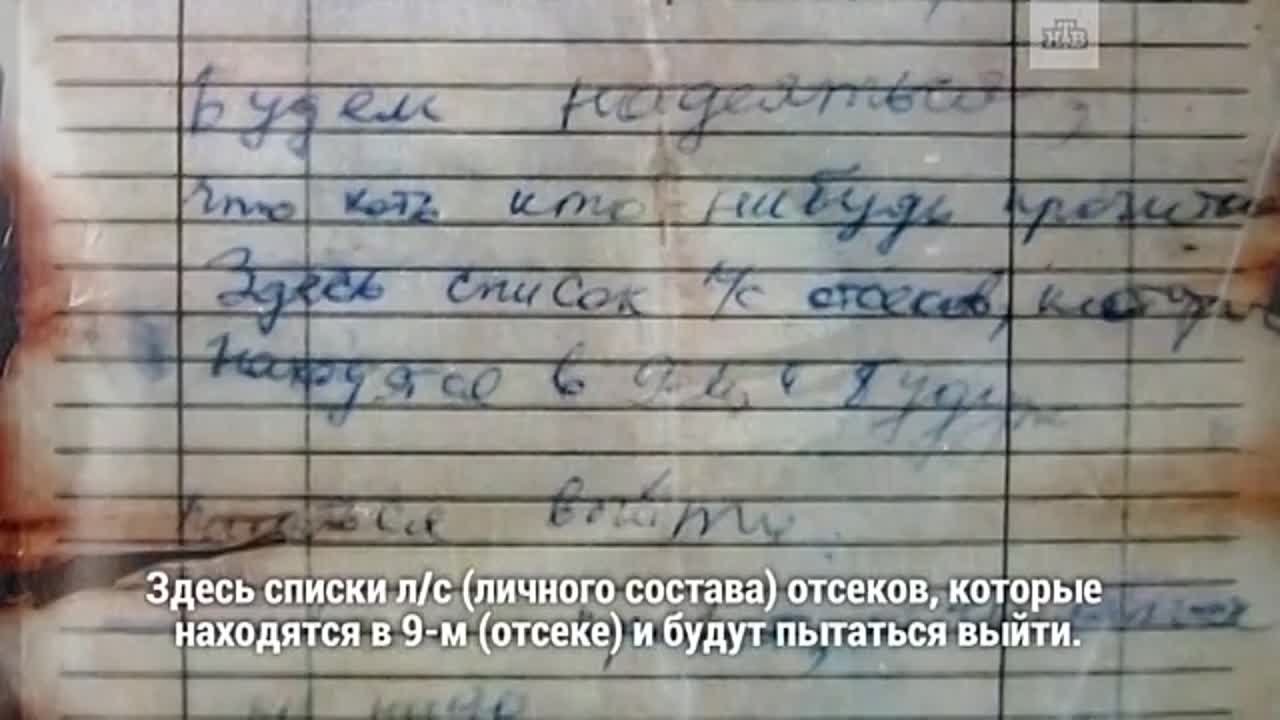 НТВ
Будем надеяться,
что хоть кто-нибудь прочитае
Здесь список л/с отсеков, которые
находятся в 9-м и будут
пытаться выйти.
Здесь списки л/с (личного состава) отсеков, которые
находятся в 9-м (отсеке) и будут пытаться выйти.